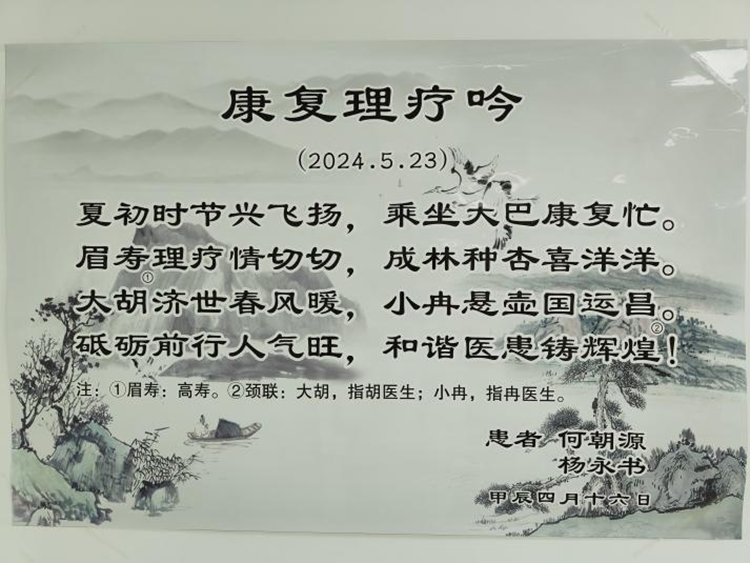 康复理疗吟
(2024.5.23)
夏初时节兴飞扬，乘坐大巴康复忙。
眉寿理疗情切切，成林种杏喜洋洋。
①
大胡济世春风暖，小冉悬壶国运昌。
②
砥砺前行人气旺，和谐医患铸辉煌！
注：①眉寿：高寿。②颈联：大胡，指胡医生；小冉，指冉医生。
患者 何朝源
杨永书
甲辰四月十六日